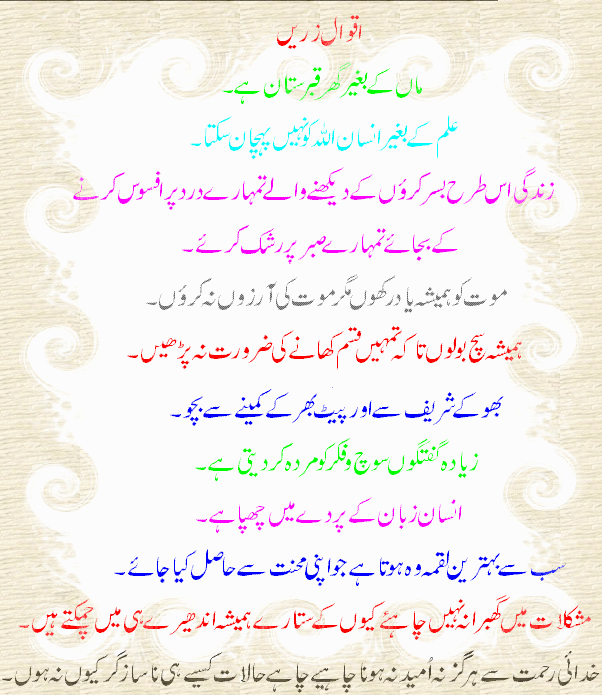 اقوال زریں
ماں کے بغیر گھر قبرستان ہے۔
علم کے بغیر انسان اللہ کو نہیں پہچان سکتا۔
زندگی اس طرح بسر کروٴں کے دیکھنے والے تمہارے درد پر افسوس کرنے
کے بجائے تمہارے صبر پر رشک کرئے۔
موت کو ہمیشہ یاد رکھوں مگر موت کی آرزوں نہ کروٴں۔
ہمیشہ سچ بولوں تا کہ تمہیں قسم کھانے کی ضرورت نہ پڑھیں۔
بھوکے شریف سے اور پیٹ بھر کے کمینے سے بچو۔
زیادہ گفتگوں سوچ و فکر کو مردہ کر دیتی ہے۔
انسان زبان کے پردے میں چھپا ہے۔
سب سے بہترین لقمہ وہ ہوتا ہے جو اپنی محنت سے حاصل کیا جائے۔
مشکلات میں گھبرانہ نہیں چاہئے کیوں کے ستارے ہمیشہ اندھیرے ہی میں چمکتے ہیں۔
خدائی رحمت سے ہرگز نہ اُمید نہ ہونا چاہیے چاہے حالات کسیے ہی ناساز گر کیوں نہ ہوں۔